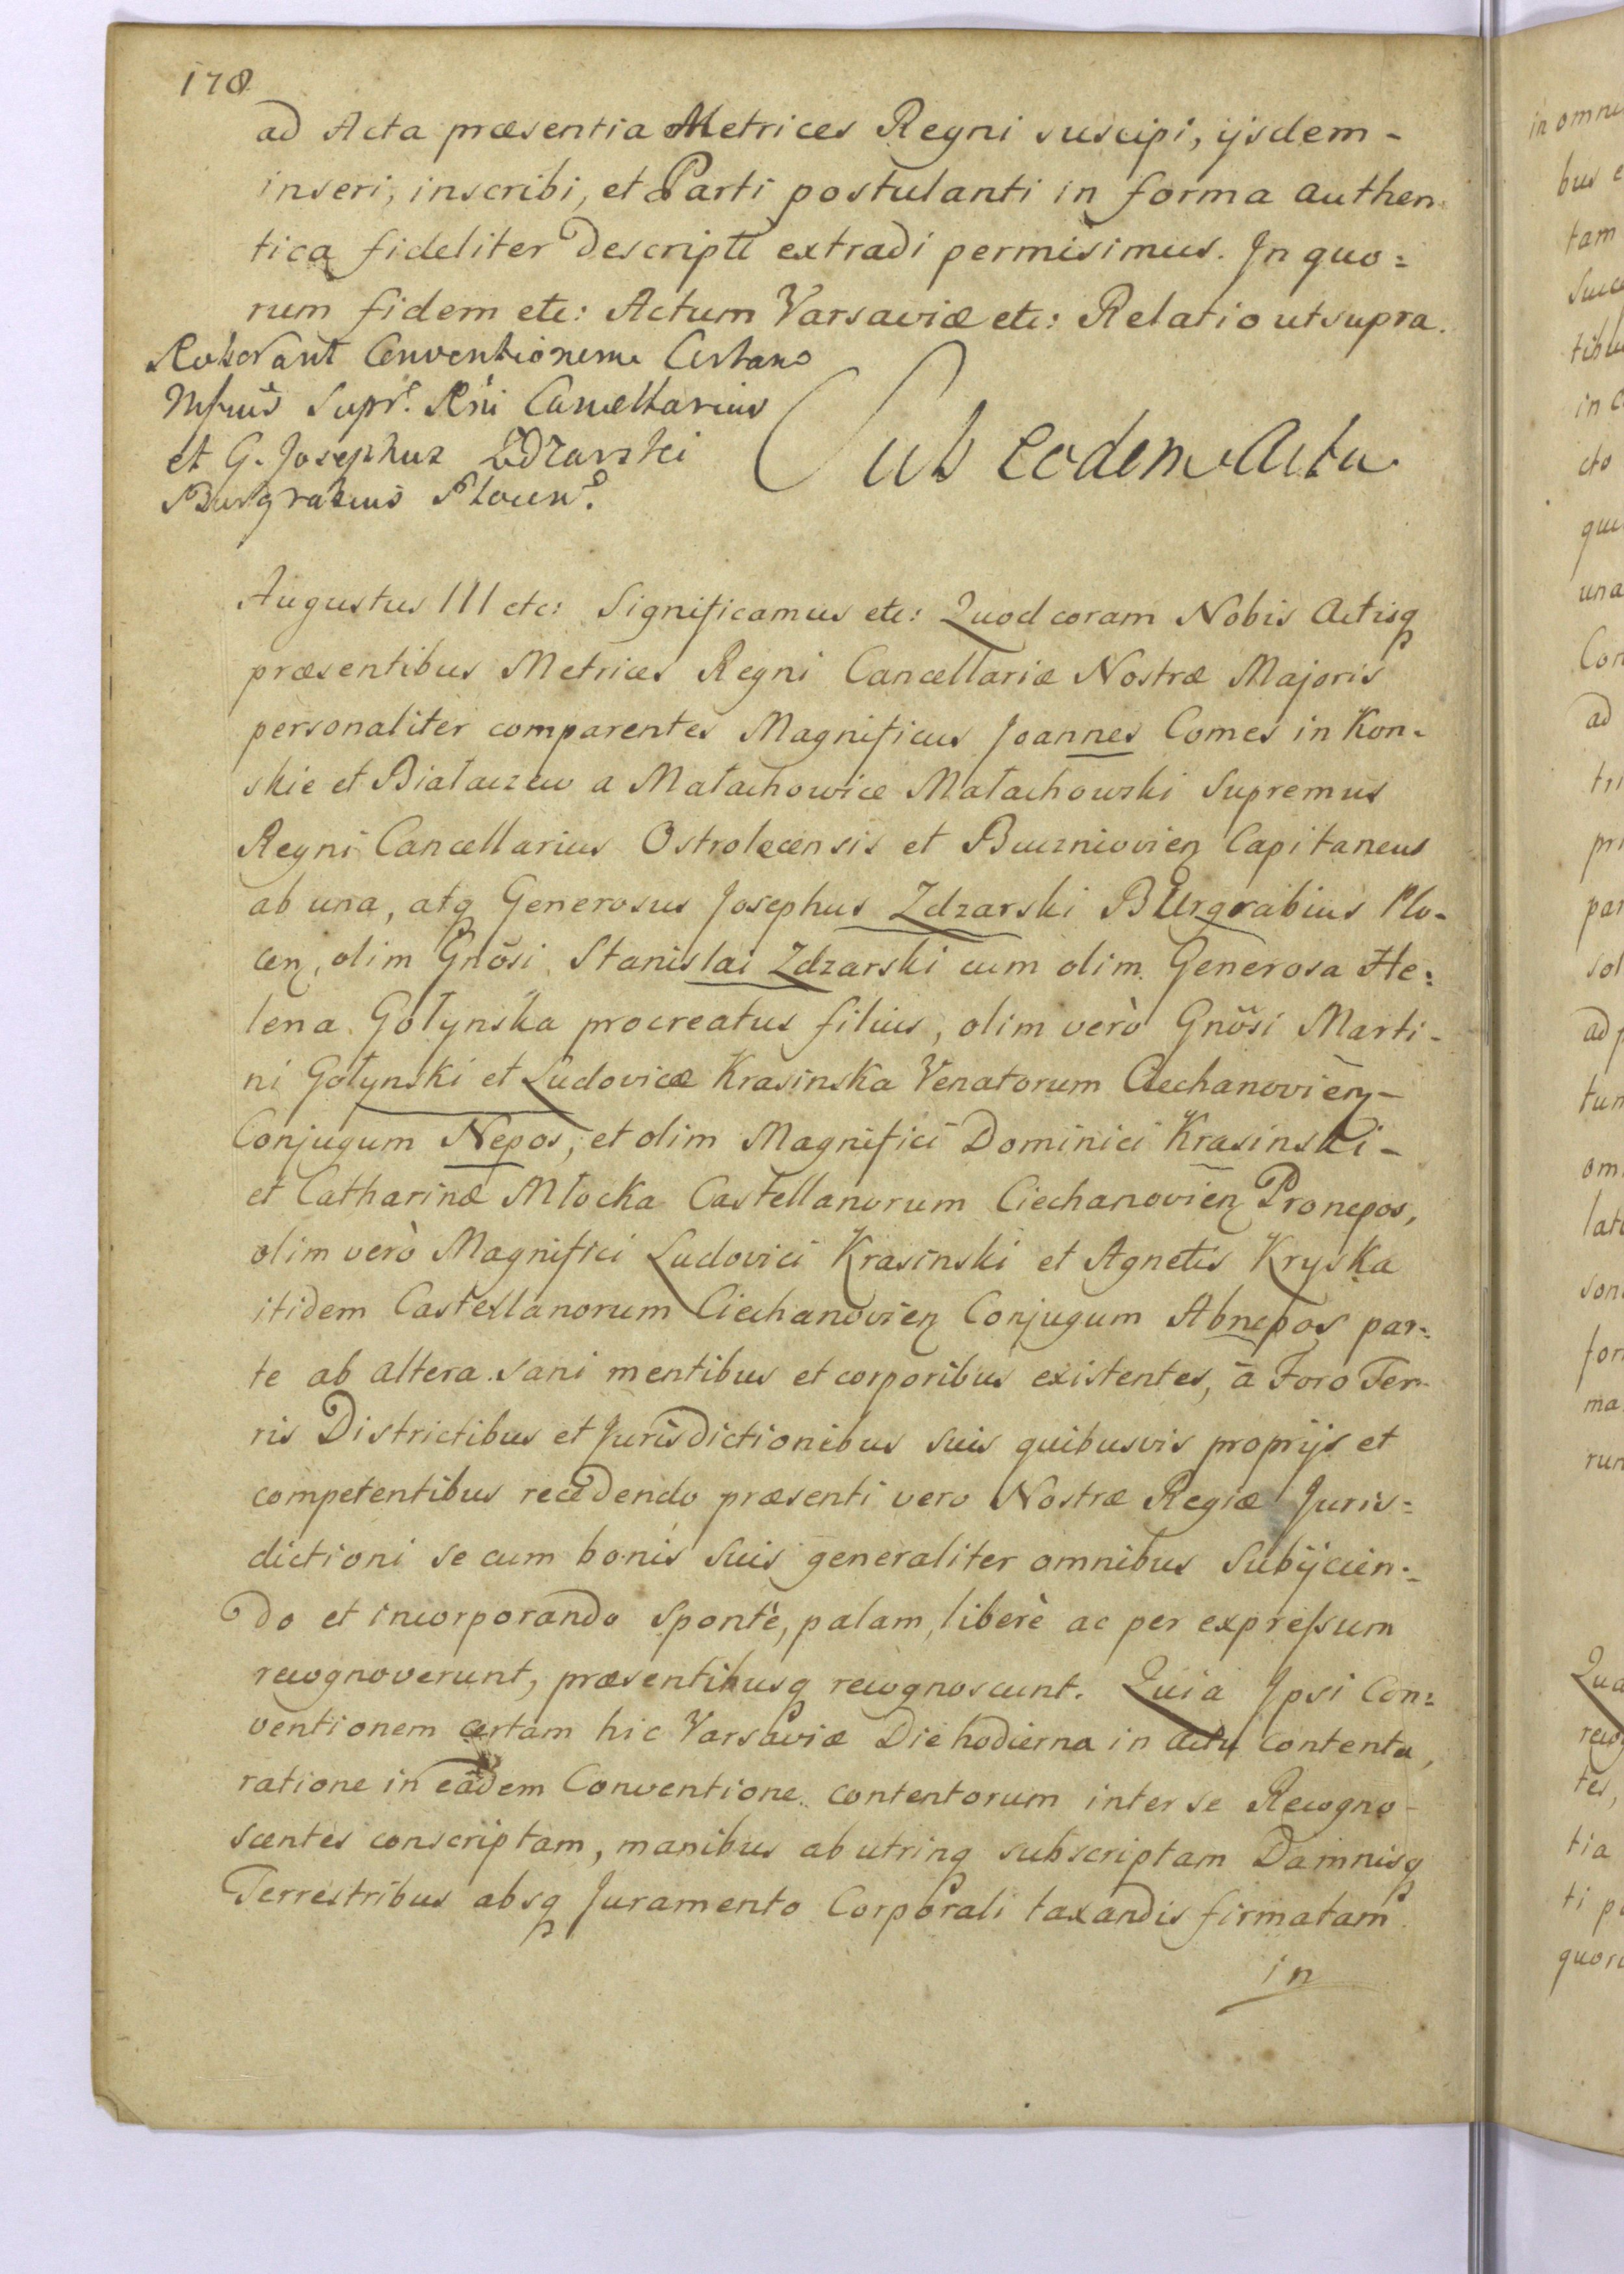 178
ad Acta præsentia Metrices Regni suscipi, ijsdem -
inseri, inscribi, et Parti postulanti in forma authen-
tica fideliter descripti extradi permisimus. In quo=
rum fidem etc: Actum Varsaviæ etc: Relatio ut supra.
Roborant Conventionem Certam
Mfcus Supr. Rni Cancellarius
et G. Josephus Zdzarski
Burgrabius Plocen.
Sub eodem Actu
Augustus III etc: Significamus etc: Quod coram Nobis Actisq
præsentibus Metrices Regni Cancellariæ Nostræ Majoris
personaliter comparentes Magnificus Joannes Comes in Kon-
skie et Białaczew a Małachowice Małachowski Supremus
Regni Cancellarius Ostrolecensis et Buczniovien Capitaneus
ab una, atq Generosus Josephus Zdzarski BUrgrabius Plo-
cen, olim Gnosi Stanislai Zdzarski cum olim Generosa He=
lena Gołynska procreatus filius, olim verò Gnosi Marti-
ni Gołynski et Ludovicæ Krasinska Venatorum Ciechanovien -
Conjugum Nepos, et olim Magnifici Dominici Krasinski -
et Catharinæ Młocka Castellanorum Ciechanovien Pronepos,
olim verò Magnifici Ludovici Krasinski et Agnetis Kryska
itidem Castellanorum Ciechanovien Conjugum Abnepos par=
te ab altera sani mentibus et corporibus existentes, à Foro Ter-
ris Districtibus et Jurisdictionibus suis quibusvis proprijs et
competentibus recedendo præsenti vero Nostræ Regiæ Juris=
dictioni se cum bonis suis generaliter omnibus subijcien=
do et incorporando spontè, palam, liberè ac per expressum
recognoverunt, præsentibusq recognoscunt. Quia Ipsi Con=
ventionem certam hic Varsaviæ Die hodierna in actu contenta,
ratione in eâdem Conventione contentorum inter se Recogno-
scentes conscriptam, manibus ab utrinq subscriptam Damnisq
Terrestribus absq Juramento Corporali taxandis firmatam
in